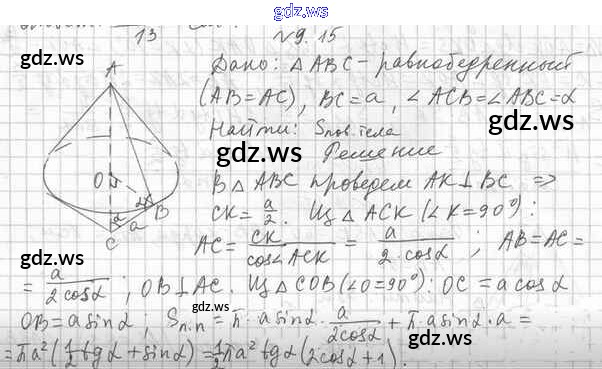 gdz.ws
13
№ 9.15
gdz.ws
Дано: △ABC - равнобедренный
A
(AB=AC), BC=a, ∠ACB=∠ABC=α
gdz.ws
gdz.ws
Найти: Sпов. тела
gdz.ws
Решение
O
α
B
α
a
C
В △ABC проведем AK⊥BC ⇒
CK = a/2. Из △ACK (∠K=90°):
gdz.ws
gdz.ws
AC = CK/cos∠ACK = a/(2·cosα); AB=AC=
= a/(2cosα), OB⊥AC. Из △COB (∠O=90°): OC = a cosα
gdz.ws
OB = a sinα; Sп.п = π·a sinα · a/(2cosα) + π·a sinα·a =
= πa²(1/2 tgα + sinα) = 1/2 πa² tgα(2cosα+1).
gdz.ws
gdz.ws